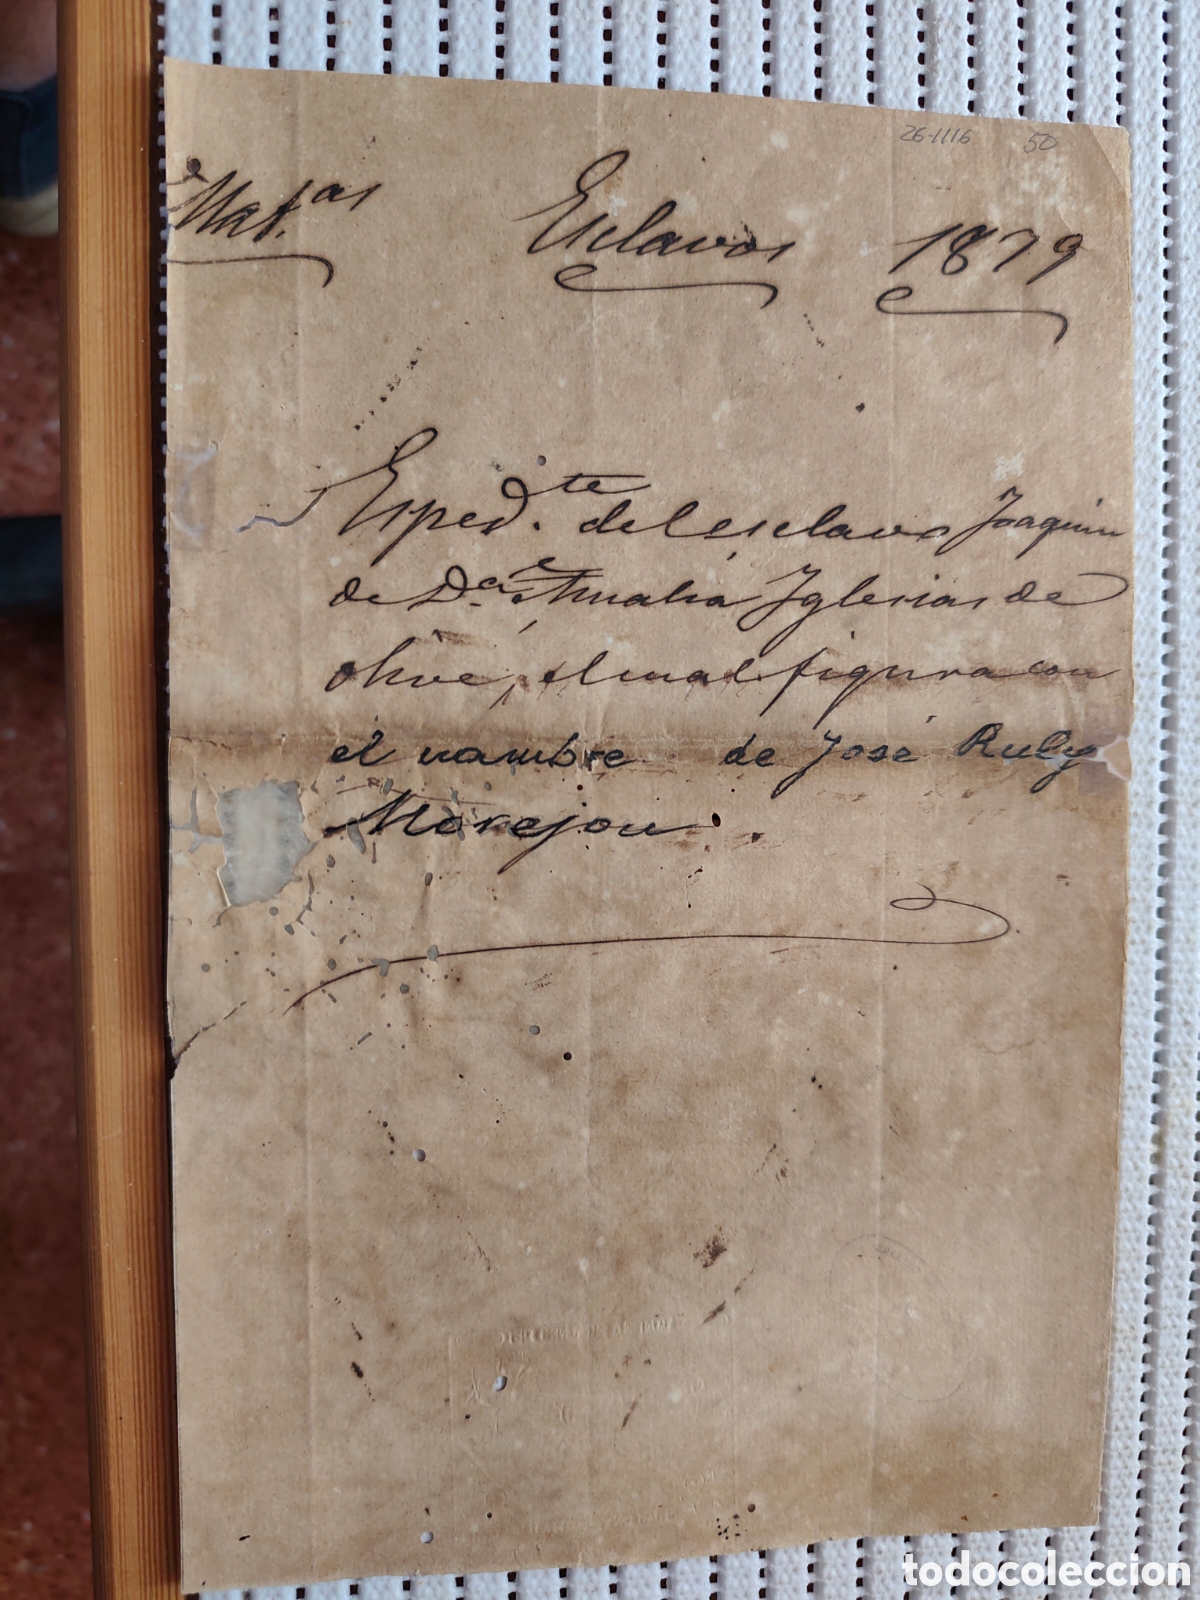 26-1116 50
Mat.as Esclavos 1879
Esped.te del esclavo Joaquin
de D.a Amalia Iglesias de
Olive, el cual figura con
el nombre de José Ruly
Morejon.
todocoleccion